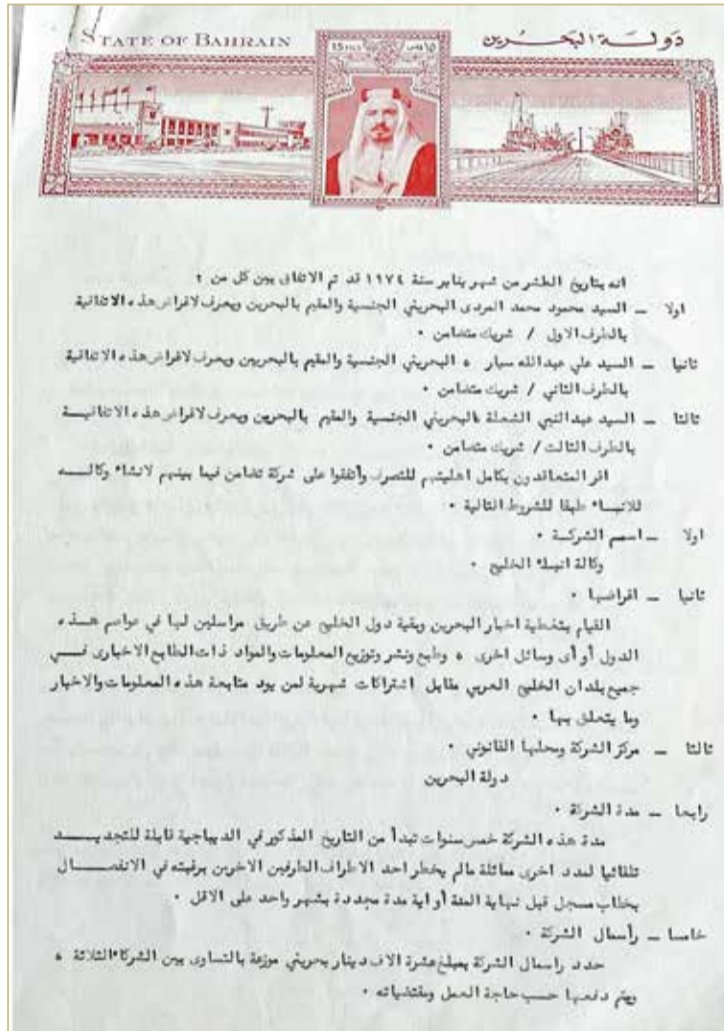 STATE OF BAHRAIN
دولة البحرين
انه بتاريخ العاشر من شهر يناير سنة ١٩٧٤ قد تم الاتفاق بين كل من :
اولا – السيد محمود محمد المردى البحريني الجنسية والمقيم بالبحرين ويعرف لاغراض هذه الاتفاقية
بالطرف الاول / شريك متضامن ٠
ثانيا – السيد علي عبدالله سيار ه البحريني الجنسية والمقيم بالبحريين ويعرف لاغراض هذه الاتفاقية
بالطرف الثاني / شريك متضامن ٠
ثالثا – السيد عبدالنبي الشعلة البحريني الجنسية والمقيم بالبحرين ويعرف لاغراض هذه الاتفاقيـــة
بالطرف الثالث / شريك متضامن ٠
اقر المتعاقدون بكامل اهليتهم للتصرف وأتفقوا على شركة تضامن فيما بينهم لانشاء وكالـــه
للانبـــاء طبقا للشروط التالية ٠
اولا – اسم الشركــة ٠
وكالة انباء الخليج ٠
ثانيا – اغراضها ٠
القيام بتغطية اخبار البحرين وبقية دول الخليج عن طريق مراسلين لها في عواصم هـــذه
الدول أو أى وسائل اخرى ه وطبع ونشر وتوزيع المعلومات والمواد ذات الطابع الاخبارى فـــي
جميع بلدان الخليج العربي مقابل اشتراكات شهرية لمن يود متابعة هذه المعلومات والاخبار
وما يتعلق بها ٠
ثالثا – مركز الشركة ومحلها القانوني ٠
دولة البحرين
رابعا – مدة الشركة ٠
مدة هذه الشركة خمس سنوات تبدأ من التاريخ المذكور في الديباجية قابلة للتجديـــد
تلقائيا لمدد اخرى مماثلة مالم يخطر احد الاطراف الطرفين الاخرين برغبته في الانفصـــال
بخطاب مسجل قبل نهاية المدة أو اية مدة مجددة بشهر واحد على الاقل ٠
خامسا – رأسمال الشركة ٠
حدد راسمال الشركة بمبلغ عشرة الاف دينار بحريني موزعة بالتساوى بين الشركاء الثلاثة ه
ويتم دفعها حسب حاجة العمل ومقتضياته ٠